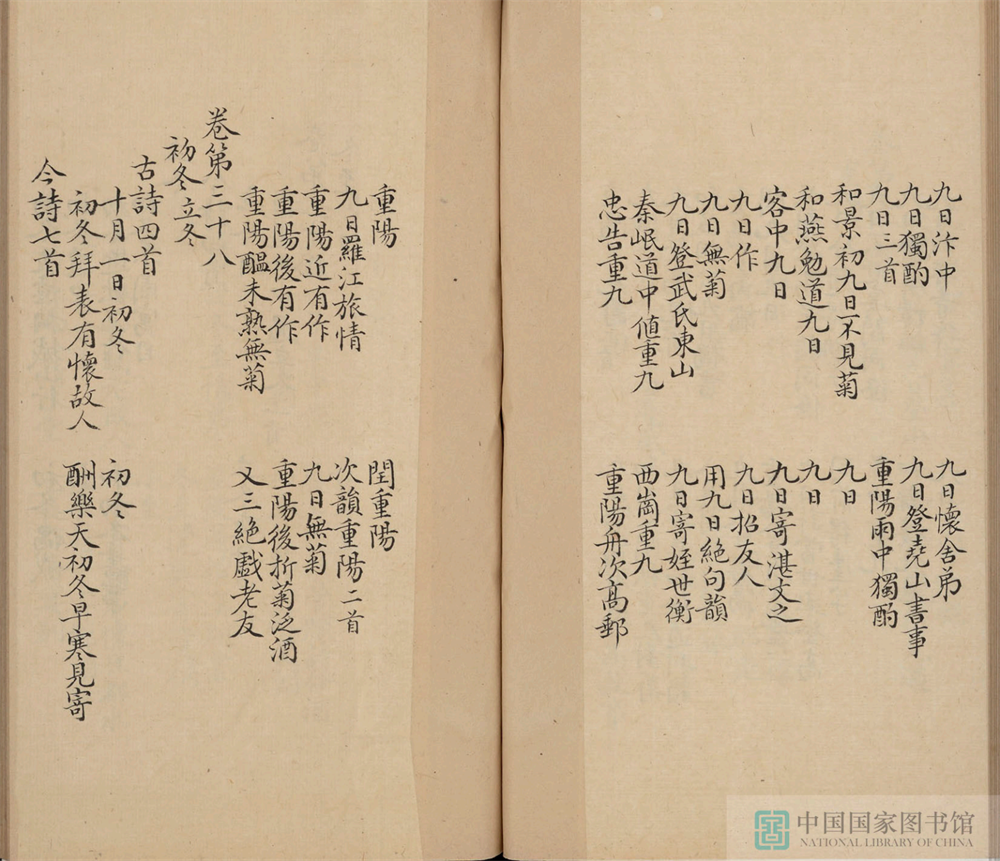 九日汴中
九日懷舍弟
九日獨酌
九日登堯山書事
九日三首
重陽雨中獨酌
和景初九日不見菊
九日
和燕勉道九日
九日
客中九日
九日寄湛文之
九日作
九日招友人
九日無菊
用九日絕句韻
九日登武氏東山
九日寄姪世衡
秦岷道中値重九
西崗重九
忠告重九
重陽舟次高郵
重陽
閏重陽
九日羅江旅情
次韻重陽二首
重陽近有作
九日無菊
重陽後有作
重陽後折菊泛酒
重陽醖未熟無菊
又三絕戲老友
卷第三十八
初冬立冬
古詩四首
十月一日初冬
初冬
初冬拜表有懷故人
酬樂天初冬早寒見寄
今詩七首
中国国家图书馆
NATIONAL LIBRARY OF CHINA